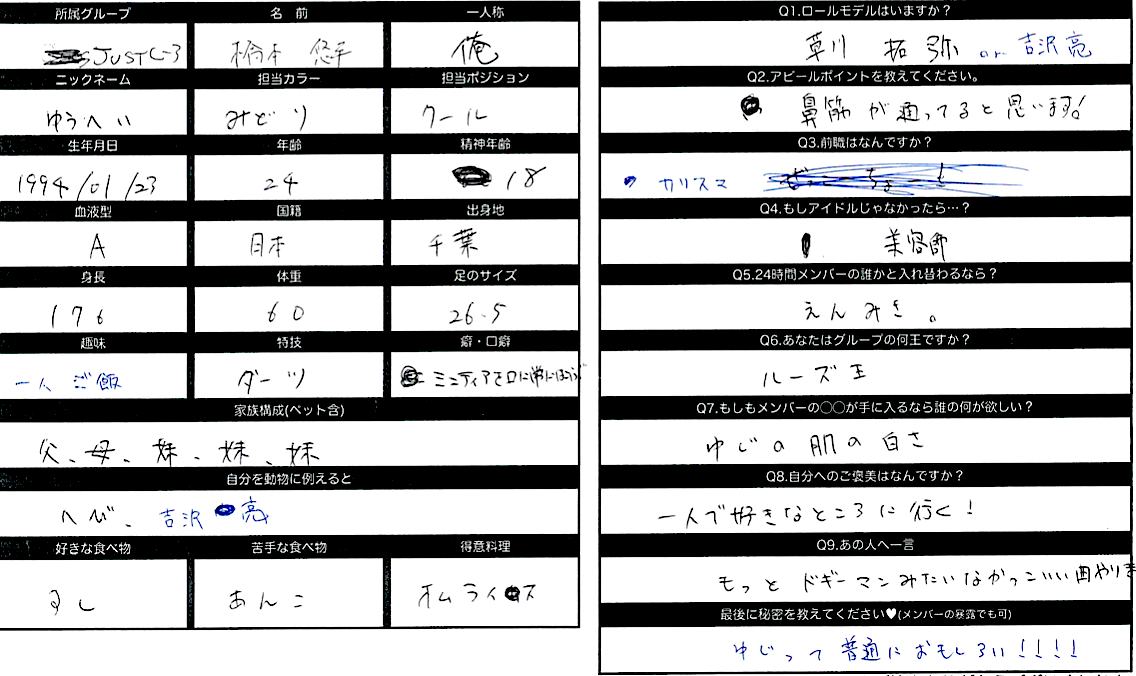 所属グループ 名 前 一人称
JUST 俺
ニックネーム 担当カラー 担当ポジション
ゆうへい みどり クール
生年月日 年齢 精神年齢
1994/01/23 24 18
血液型 国籍 出身地
A 日本 千葉
身長 体重 足のサイズ
176 60 26.5
趣味 特技 癖・口癖
一人ご飯 ダーツ ミンティアを口に常に
家族構成(ペット含)
父、母、妹、妹、妹
自分を動物に例えると
へび、吉沢 亮
好きな食べ物 苦手な食べ物 得意料理
すし あんこ オムライス
Q1.ロールモデルはいますか?
草川 拓弥 or 吉沢亮
Q2.アピールポイントを教えてください。
鼻筋が通ってると思います!
Q3.前職はなんですか?
カリスマ
Q4.もしアイドルじゃなかったら…?
美容師
Q5.24時間メンバーの誰かと入れ替わるなら?
えんみき。
Q6.あなたはグループの何王ですか?
ルーズ王
Q7.もしもメンバーの○○が手に入るなら誰の何が欲しい?
ゆじの肌の白さ
Q8.自分へのご褒美はなんですか?
一人で好きなところに行く!
Q9.あの人へ一言
もっとドギーマンみたいなかっこいい曲やりま
最後に秘密を教えてください♥(メンバーの暴露でも可)
ゆじって普通におもしろい!!!!